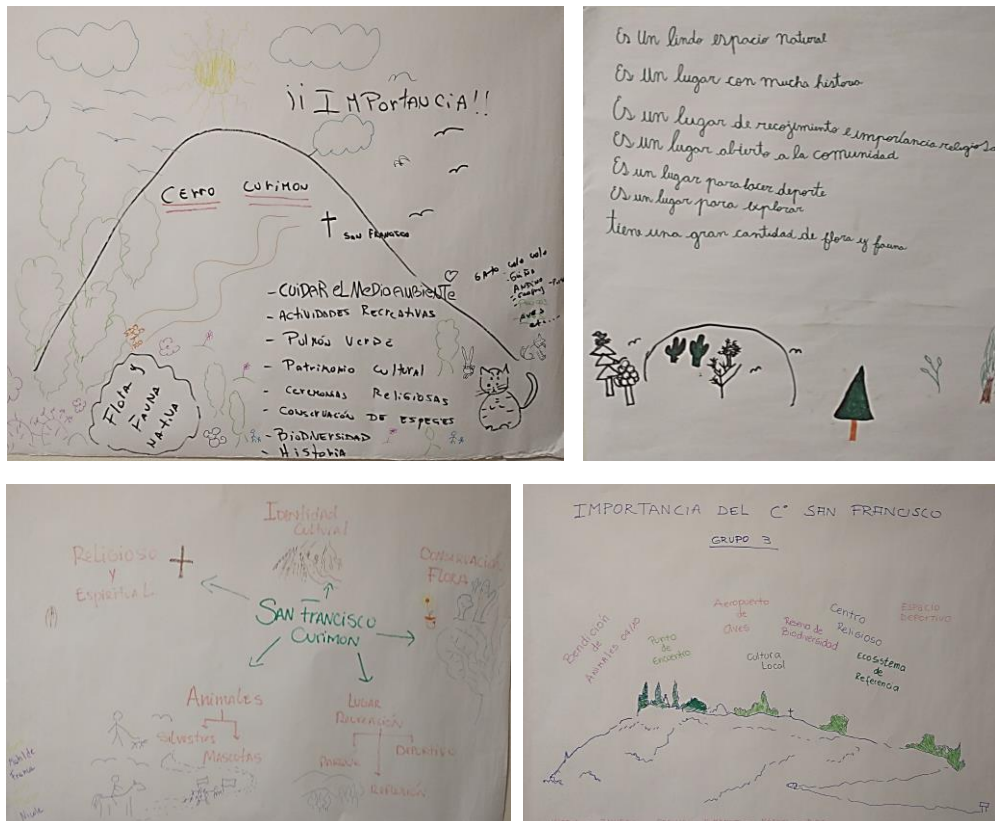 ¡¡IMPORTANCIA!!
CERRO CURIMON
SAN FRANCISCO
- CUIDAR EL MEDIO AMBIENTE
- ACTIVIDADES RECREATIVAS
- PULMÓN VERDE
- PATRIMONIO CULTURAL
- CEREMONIAS RELIGIOSAS
- CONSERVACIÓN DE ESPECIES
- BIODIVERSIDAD
- HISTORIA
GATO COLO COLO
AVES
etc...
FLORA Y
FAUNA
NATIVA
Es Un lindo espacio natural
Es Un lugar con mucha historia
Es un lugar de recojimiento e importancia religiosa
Es un lugar abierto a la comunidad
Es un lugar para hacer deporte
Es un lugar para explorar
tiene una gran cantidad de flora y fauna
IDENTIDAD
CULTURAL
RELIGIOSO
Y
ESPIRITUAL
CONSERVACIÓN
FLORA
SAN FRANCISCO
CURIMON
ANIMALES
SILVESTRES
MASCOTAS
LUGAR
RECREACIÓN
PARQUE
DEPORTIVO
Nicole
IMPORTANCIA DEL C° SAN FRANCISCO
GRUPO 3
Bendición
de
Animales 04/10
Punto
de
Encuentro
Aeropuerto
de
Aves
Cultura
Local
Reserva de
Biodiversidad
Centro
Religioso
Ecosistema
de
Referencia
ESPACIO
DEPORTIVO